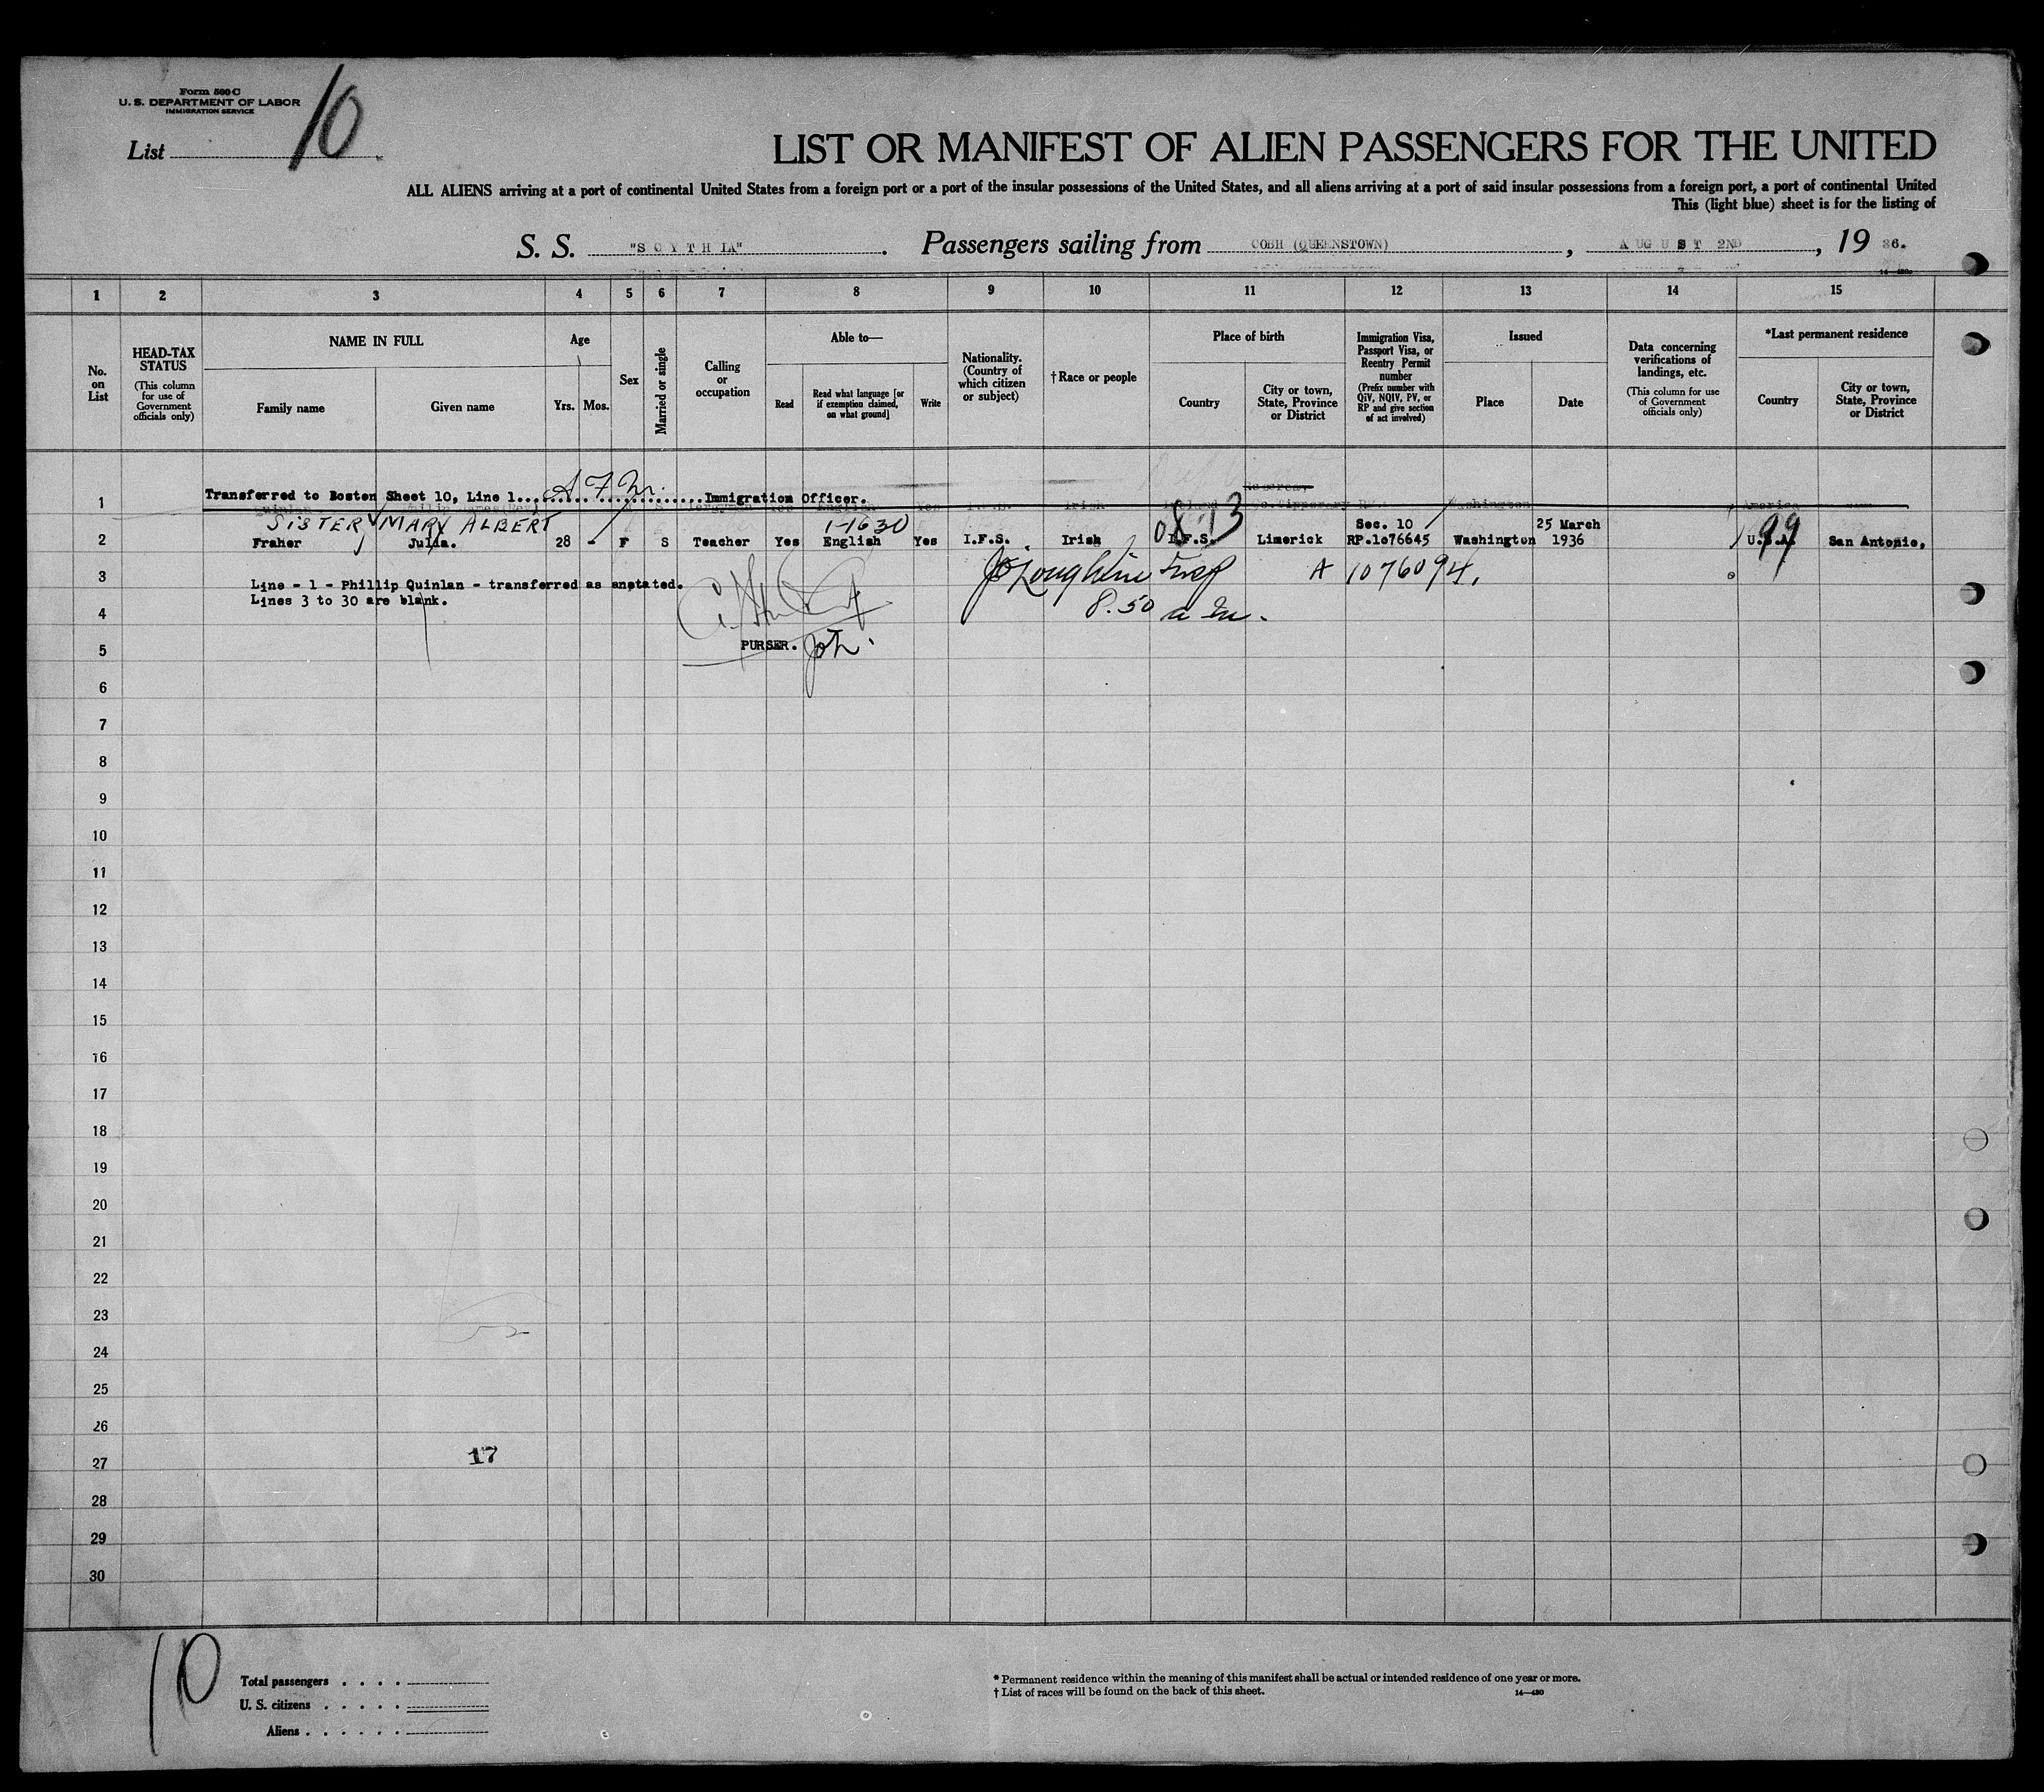 Form 500 C
U. S. DEPARTMENT OF LABOR
IMMIGRATION SERVICE
List 10
LIST OR MANIFEST OF ALIEN PASSENGERS FOR THE UNITED
ALL ALIENS arriving at a port of continental United States from a foreign port or a port of the insular possessions of the United States, and all aliens arriving at a port of said insular possessions from a foreign port, a port of continental United
This (light blue) sheet is for the listing of
S. S. "SCYTHIA". Passengers sailing from COBH (QUEENSTOWN), AUGUST 2ND, 19 36.
14—480
1 2 3 4 5 6 7 8 9 10 11 12 13 14 15
No. on List
HEAD-TAX STATUS
(This column for use of Government officials only)
NAME IN FULL
Family name
Given name
Age
Yrs. Mos.
Sex
Married or single
Calling or occupation
Able to—
Read
Read what language [or if exemption claimed, on what ground]
Write
Nationality. (Country of which citizen or subject)
† Race or people
Place of birth
Country
City or town, State, Province or District
Immigration Visa, Passport Visa, or Reentry Permit number
(Prefix number with QIV, NQIV, PV, or RP and give section of act involved)
Issued
Place
Date
Data concerning verifications of landings, etc.
(This column for use of Government officials only)
*Last permanent residence
Country
City or town, State, Province or District
1 Transferred to Boston Sheet 10, Line 1.....................Immigration Officer.
SISTER MARY ALBERT 1-1630 0813 Sec. 10 25 March 99
2 Fraher Julia. 28 - F S Teacher Yes English Yes I.F.S. Irish I.F.S. Limerick RP.1076645 Washington 1936 U.S.A. San Antonio,
3 Line - 1 - Phillip Quinlan - transferred as anotated. A 1076094.
Lines 3 to 30 are blank.
4 8.50 a m.
5 PURSER.
6
7
8
9
10
11
12
13
14
15
16
17
18
19
20
21
22
23
24
25
26
27 17
28
29
30
10
Total passengers . . . .
U. S. citizens . . . . .
Aliens . . . . . .
* Permanent residence within the meaning of this manifest shall be actual or intended residence of one year or more.
† List of races will be found on the back of this sheet.
14—480